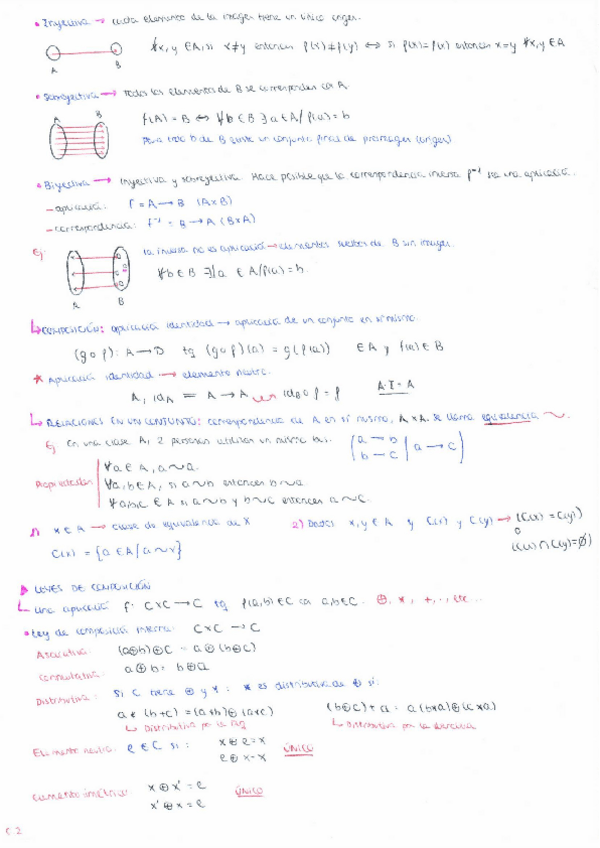 • Inyectiva → cada elemento de la imagen tiene un único origen.
∀x,y ∈ A, si x≠y entonces f(x)≠f(y) ⟺ si f(x)=f(y) entonces x=y ∀x,y∈A
A B
• Sobreyectiva → Todos los elementos de B se corresponden con A
A B
f(A) = B ⟺ ∀b∈B ∃a∈A / f(a)=b
Para cada b de B existe un conjunto de preimagen (origen)
• Biyectiva → Inyectiva y sobreyectiva. Hace posible que la correspondencia inversa f⁻¹ sea una aplicación.
- aplicación: f = A → B (A×B)
- correspondencia: f⁻¹ = B → A (B×A)
Ej: la inversa no es aplicación → elementos sueltos de B sin imagen.
∀b∈B ∃!a ∈ A / f(a) = b.
A B
↳ COMPOSICIÓN: aplicación identidad → aplicación de un conjunto en sí mismo.
(g∘f): A → D tq (g∘f)(a) = g(f(a)) ∈ A y f(a) ∈ B
* Aplicación identidad → elemento neutro.
A, id_A = A → A id_B∘f = f A·I = A
↳ RELACIONES EN UN CONJUNTO: correspondencia de A en sí mismo, A×A. Se llama equivalencia ~.
Ej En una clase A, 2 personas utilizan un mismo bus. (a → b | a → c)
b → c
Propiedades ∀a∈A, a~a.
∀a,b∈A, si a~b entonces b~a.
∀a,b,c ∈ A si a~b y b~c entonces a~c.
1) x∈A → clase de equivalencia de x 2) Dados x,y∈A y C(x) y C(y) → (C(x) = C(y))
o
C(x) = {a∈A / a~x} (C(x)∩C(y)=∅)
▶ LEYES DE COMPOSICIÓN
↳ Una aplicación f: C×C → C tq f(a,b)∈C con a,b∈C. ⊕, *, +, ·, etc...
• Ley de composición interna: C×C → C
Asociativa: (a⊕b)⊕c = a⊕(b⊕c)
Conmutativa: a⊕b = b⊕a
Distributiva: Si C tiene ⊕ y *: * es distributiva de ⊕ si:
a*(b+c) = (a*b)⊕(a*c) (b⊕c)*a = (b*a)⊕(c*a)
↳ Distributiva por la izq ↳ Distributiva por la derecha
Elemento neutro: e∈C si: x⊕e=x ÚNICO
e⊕x=x
Elemento simétrico: x⊕x' = e ÚNICO
x'⊕x = e